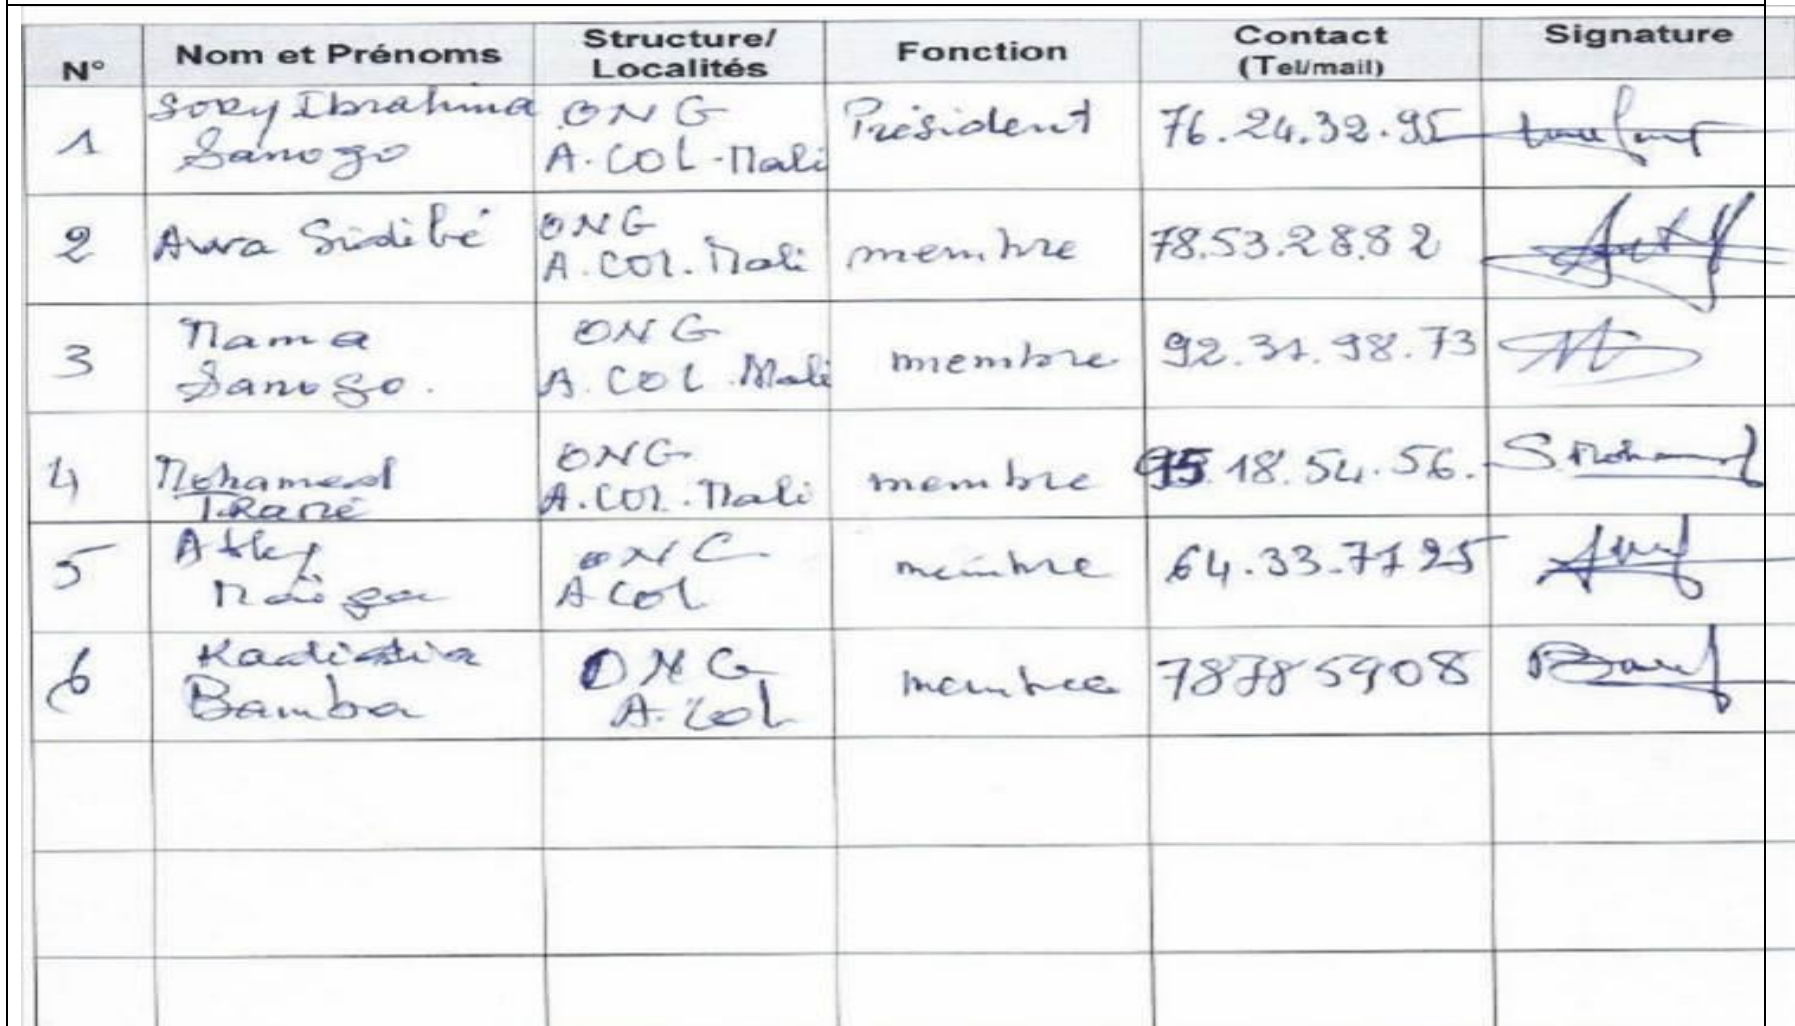 N° Nom et Prénoms Structure/ Localités Fonction Contact (Tel/mail) Signature
1 Sory Ibrahima Sanogo ONG A.COL-Mali Président 76.24.32.95
2 Awa Sidibé ONG A.COL.Mali membre 78.53.28.82
3 Mama Sanogo. ONG A.COL.Mali membre 92.31.98.73
4 Mohamed TRaoré ONG A.COL.Mali membre 95.18.54.56.
5 Maïga ONG ACOL membre 64.33.77 25
6 Kadiatia Bamba ONG A.Col membre 78785908